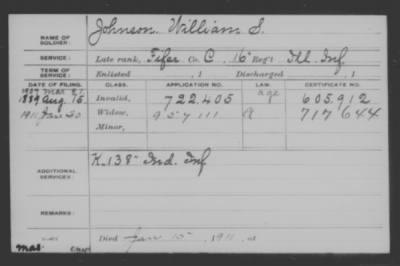 NAME OF SOLDIER: Johnson, William S.
SERVICE: Late rank, Fifer, Co. C, 16" Reg't Ill. Inf
TERM OF SERVICE: Enlisted , 1 Discharged , 1
DATE OF FILING. CLASS. APPLICATION NO. LAW. CERTIFICATE NO.
1889 Aug. 15 Invalid, 722.405 605.912
1911 Jan 30 Widow, 957111 717644
Minor,
ADDITIONAL SERVICES: K. 138" Ind. Inf
REMARKS:
Died Jan 15, 1911, at